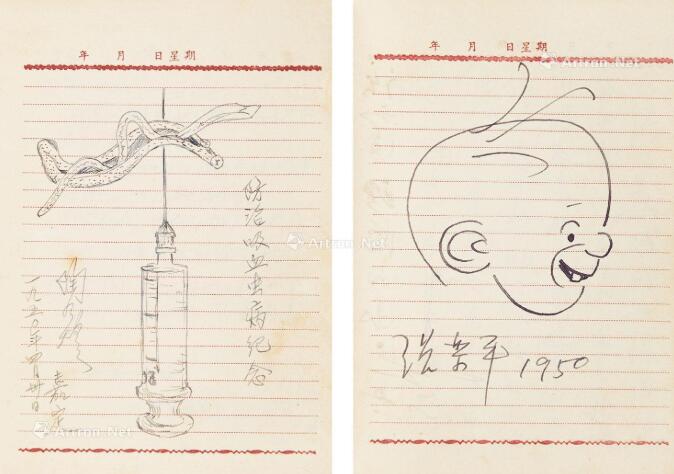 年 月 日星期
防治吸血虫病纪念
嘉定
一九五〇年四月
Artron.Net
Artron.Net
年 月 日星期
张乐平 1950
Artron.Net
Artron.Net